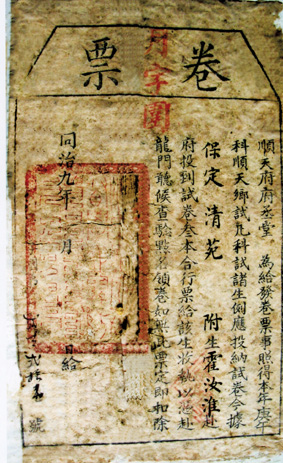 卷票
順天府府丞堂　為給發卷票事照得本年庚午
科順天鄉試凡科試諸生例應投納試卷今據
保定清苑　附生霍汝淮赴
府投到試卷叁本合行票給該生收執以憑赴
龍門聽候查驗點名領卷如無此票定即扣除
同治九年　月　日給
號